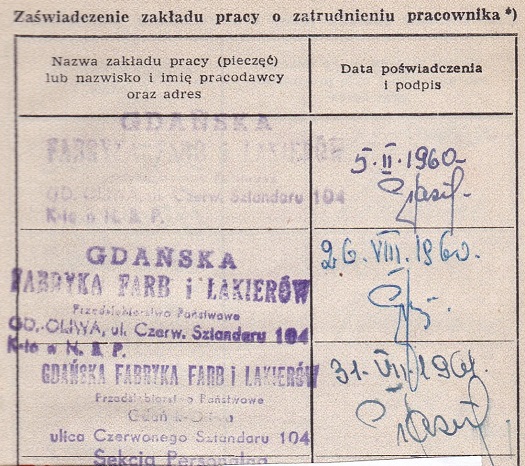 Zaświadczenie zakładu pracy o zatrudnieniu pracownika*)
Nazwa zakładu pracy (pieczęć)
lub nazwisko i imię pracodawcy
oraz adres
Data poświadczenia
i podpis
GDAŃSKA
FABRYKA FARB i LAKIERÓW
GD.-OLIWA, ul. Czerw. Sztandaru 104
K-to w N. B P.
5.II.1960
GDAŃSKA
FABRYKA FARB i LAKIERÓW
Przedsiębiorstwo Państwowe
GD.-OLIWA, ul. Czerw. Sztandaru 104
K-to w N. B P.
26.VIII.1960.
GDAŃSKA FABRYKA FARB i LAKIERÓW
Przedsiębiorstwo Państwowe
Gdańsk-Oliwa
ulica Czerwonego Sztandaru 104
Sekcja Personalna
31.VII.1961.